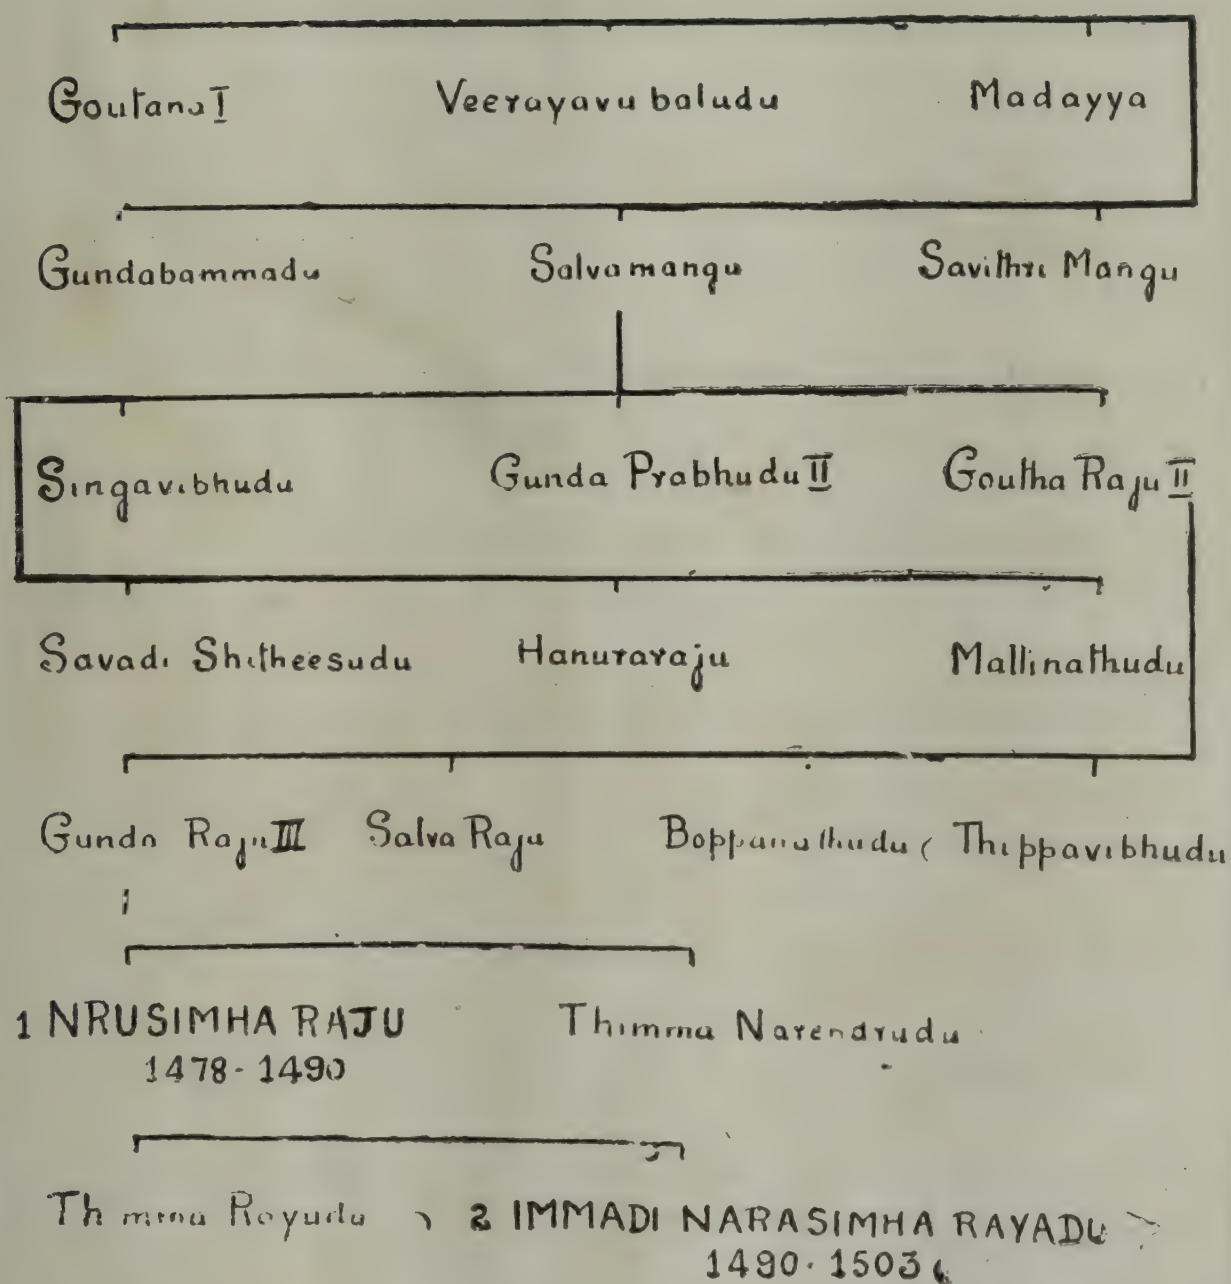 Goutana I Veerayavubaludu Madayya
Gundabammadu Salvamangu Savithri Mangu
Singavibhudu Gunda Prabhudu II Goutha Raju II
Savadi Shitheesudu Hanuraraju Mallinathudu
Gunda Raju III Salva Raju Boppanathudu Thippavibhudu
1 NRUSIMHA RAJU Thimma Narendrudu
1478-1490
Thimma Rayudu 2 IMMADI NARASIMHA RAYADU
1490-1503